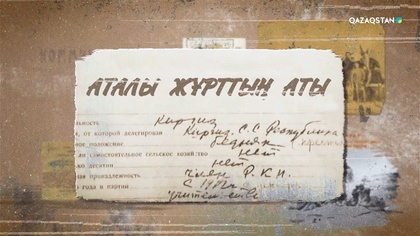 QAZAQSTAN
АТАЛЫ ЖҰРТТЫҢ АТЫ
ьность Киргиз
а, от которой делегирован Киргиз. С. С. Республика
ное положение бедняк
ли самостоятельное сельское хозяйство нет
ко десятин нет
ная принадлежность член Р. К. П.
о года в партии С